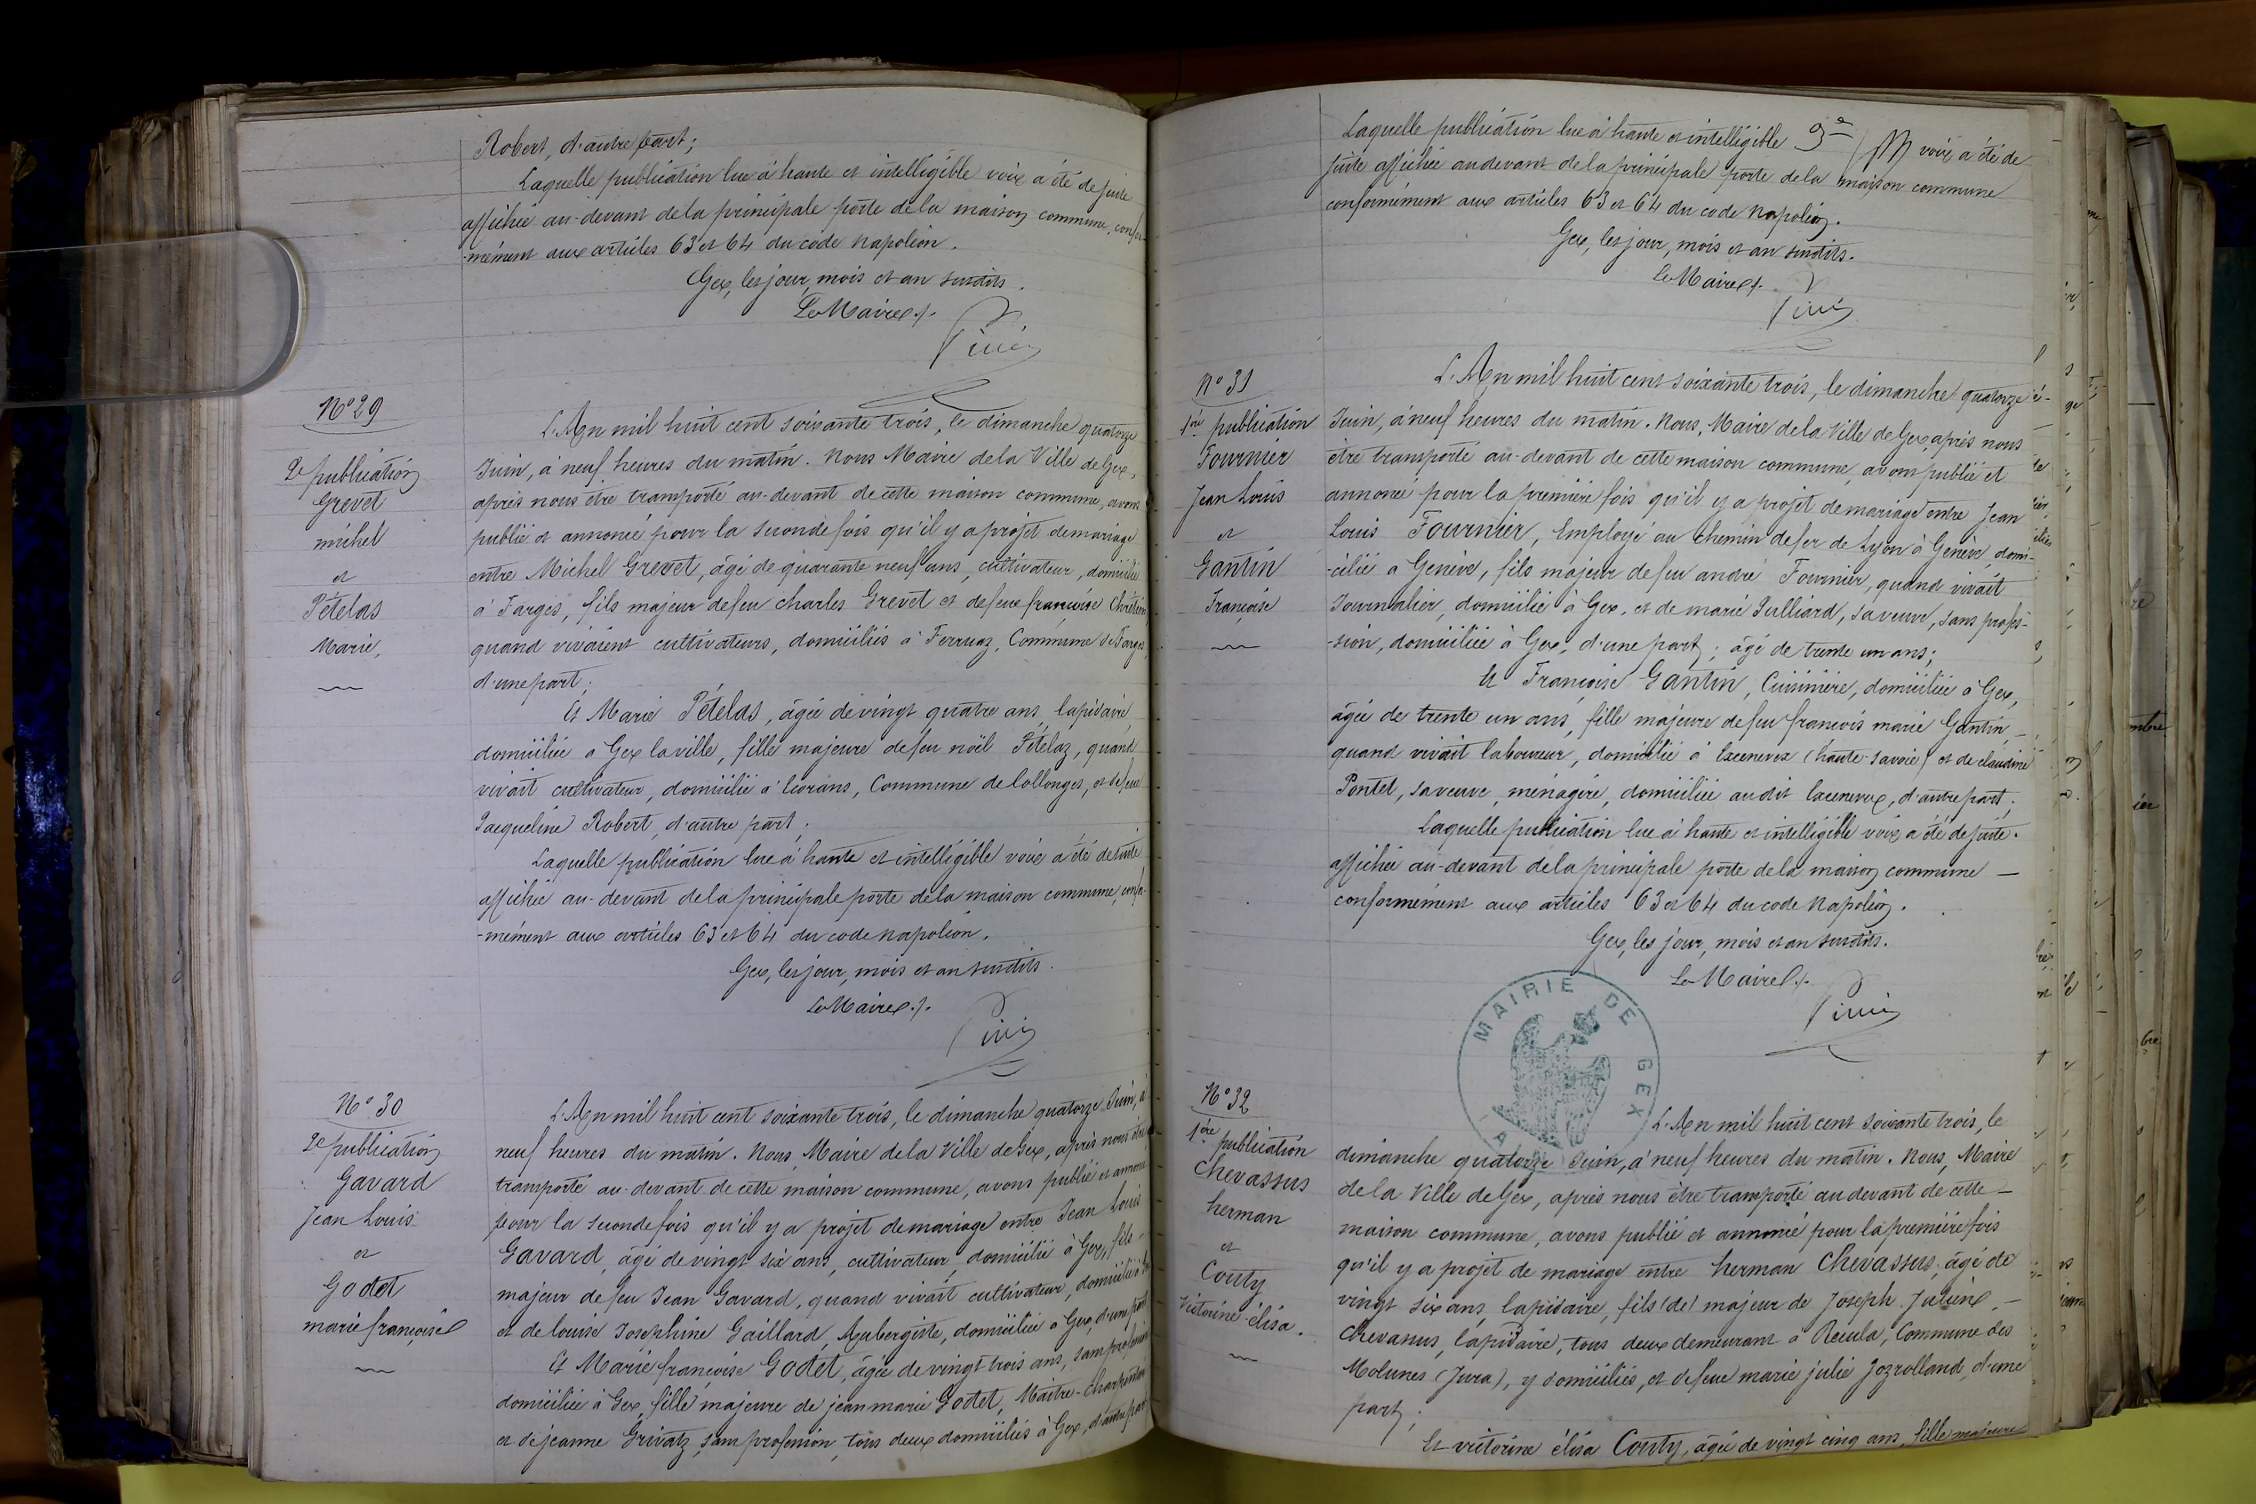 Robert, d'autre part;
Laquelle publication lue à haute et intelligible voix a été de suite
affichée au-devant de la principale porte de la maison commune, confor-
-mément aux articles 63 et 64 du code Napoléon.
Gex, les jour, mois et an susdits.
Le Maire
N° 29
2e publication
Grevet
michel
et
Pételas
Marie,
L'An mil huit cent soixante trois, le dimanche quatorze
Juin, à neuf heures du matin. Nous Maire de la Ville de Gex,
après nous être transporté au-devant de cette maison commune, avons
publié et annoncé pour la seconde fois qu'il y a projet de mariage
entre Michel Grevet, âgé de quarante neuf ans, cultivateur, domicilié
à Farges, fils majeur de feu Charles Grevet et de feue françoise Chrétien
quand vivaient cultivateurs, domiciliés à Ferruaz, Commune de Farges,
d'une part;
Et Marie Pételas, âgée de vingt quatre ans, lapidaire,
domiciliée à Gex la ville, fille majeure de feu noël Pételaz, quand
vivait cultivateur, domicilié à écorans, Commune de Collonges, et de feue
Jacqueline Robert, d'autre part;
Laquelle publication lue à haute et intelligible voix a été de suite
affichée au-devant de la principale porte de la maison commune, confor-
-mément aux articles 63 et 64 du code Napoléon.
Gex, les jour, mois et an susdits.
Le Maire
N° 30
2e publication
Gavard
Jean Louis
et
Godet
marie françoise
L'An mil huit cent soixante trois, le dimanche quatorze Juin, à
neuf heures du matin. Nous, Maire de la Ville de Gex, après nous être
transporté au-devant de cette maison commune, avons publié et annoncé
pour la seconde fois qu'il y a projet de mariage entre Jean Louis
Gavard, âgé de vingt six ans, cultivateur, domicilié à Gex, fils
majeur de feu Jean Gavard, quand vivait cultivateur, domicilié à Gex
et de louise Josephine Gaillard, Aubergiste, domiciliée à Gex, d'une part
Et Marie françoise Godet, âgée de vingt trois ans, sans profession
domiciliée à Gex, fille majeure de jean marie Godet, Maître-Charpentier
et de jeanne Grivatz, sans profession, tous deux domiciliés à Gex, d'autre part
Laquelle publication lue à haute et intelligible voix a été de
suite affichée au devant de la principale porte de la maison commune
conformément aux articles 63 et 64 du code Napoléon.
Gex, les jour, mois et an susdits.
Le Maire
N° 31
1ère publication
Fournier
Jean Louis
et
Gantin
Françoise
L'An mil huit cent soixante trois, le dimanche quatorze
Juin, à neuf heures du matin. Nous, Maire de la Ville de Gex, après nous
être transporté au-devant de cette maison commune, avons publié et
annoncé pour la première fois qu'il y a projet de mariage entre Jean
Louis Fournier, Employé au chemin de fer de Lyon à Genève, domi-
-cilié à Genève, fils majeur de feu andré Fournier, quand vivait
Journalier, domicilié à Gex, et de marie Julliard, sa veuve, sans profes-
-sion, domiciliée à Gex, d'une part; âgé de trente un ans;
Et Françoise Gantin, Cuisinière, domiciliée à Gex,
âgée de trente un ans, fille majeure de feu françois marie Gantin
quand vivait laboureur, domicilié à Excenevex (haute-savoie) et de claudine
Pontet, sa veuve, ménagère, domiciliée audit Excenevex, d'autre part;
Laquelle publication lue à haute et intelligible voix a été de suite
affichée au-devant de la principale porte de la maison commune
conformément aux articles 63 et 64 du code Napoléon.
Gex, les jour, mois et an susdits.
Le Maire
MAIRIE DE GEX
N° 32
1ère publication
Chevassus
herman
et
Couty
Victorine élisa.
L'An mil huit cent soixante trois, le
dimanche quatorze Juin, à neuf heures du matin. Nous, Maire
de la Ville de Gex, après nous être transporté au devant de cette
maison commune, avons publié et annoncé pour la première fois
qu'il y a projet de mariage entre herman Chevassus, âgé de
vingt six ans, lapidaire, fils (de) majeur de Joseph Julien
Chevassus, lapidaire, tous deux demeurant à Recula, Commune des
Molunes (Jura), y domiciliés, et de feue marie julie Jozrolland, d'une
part;
Et victorine élisa Couty, âgée de vingt cinq ans, fille majeure